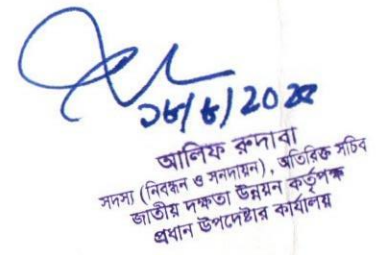 আলিফ রুদাবা
সদস্য (নিবন্ধন ও সনদায়ন), অতিরিক্ত সচিব
জাতীয় দক্ষতা উন্নয়ন কর্তৃপক্ষ
প্রধান উপদেষ্টার কার্যালয়